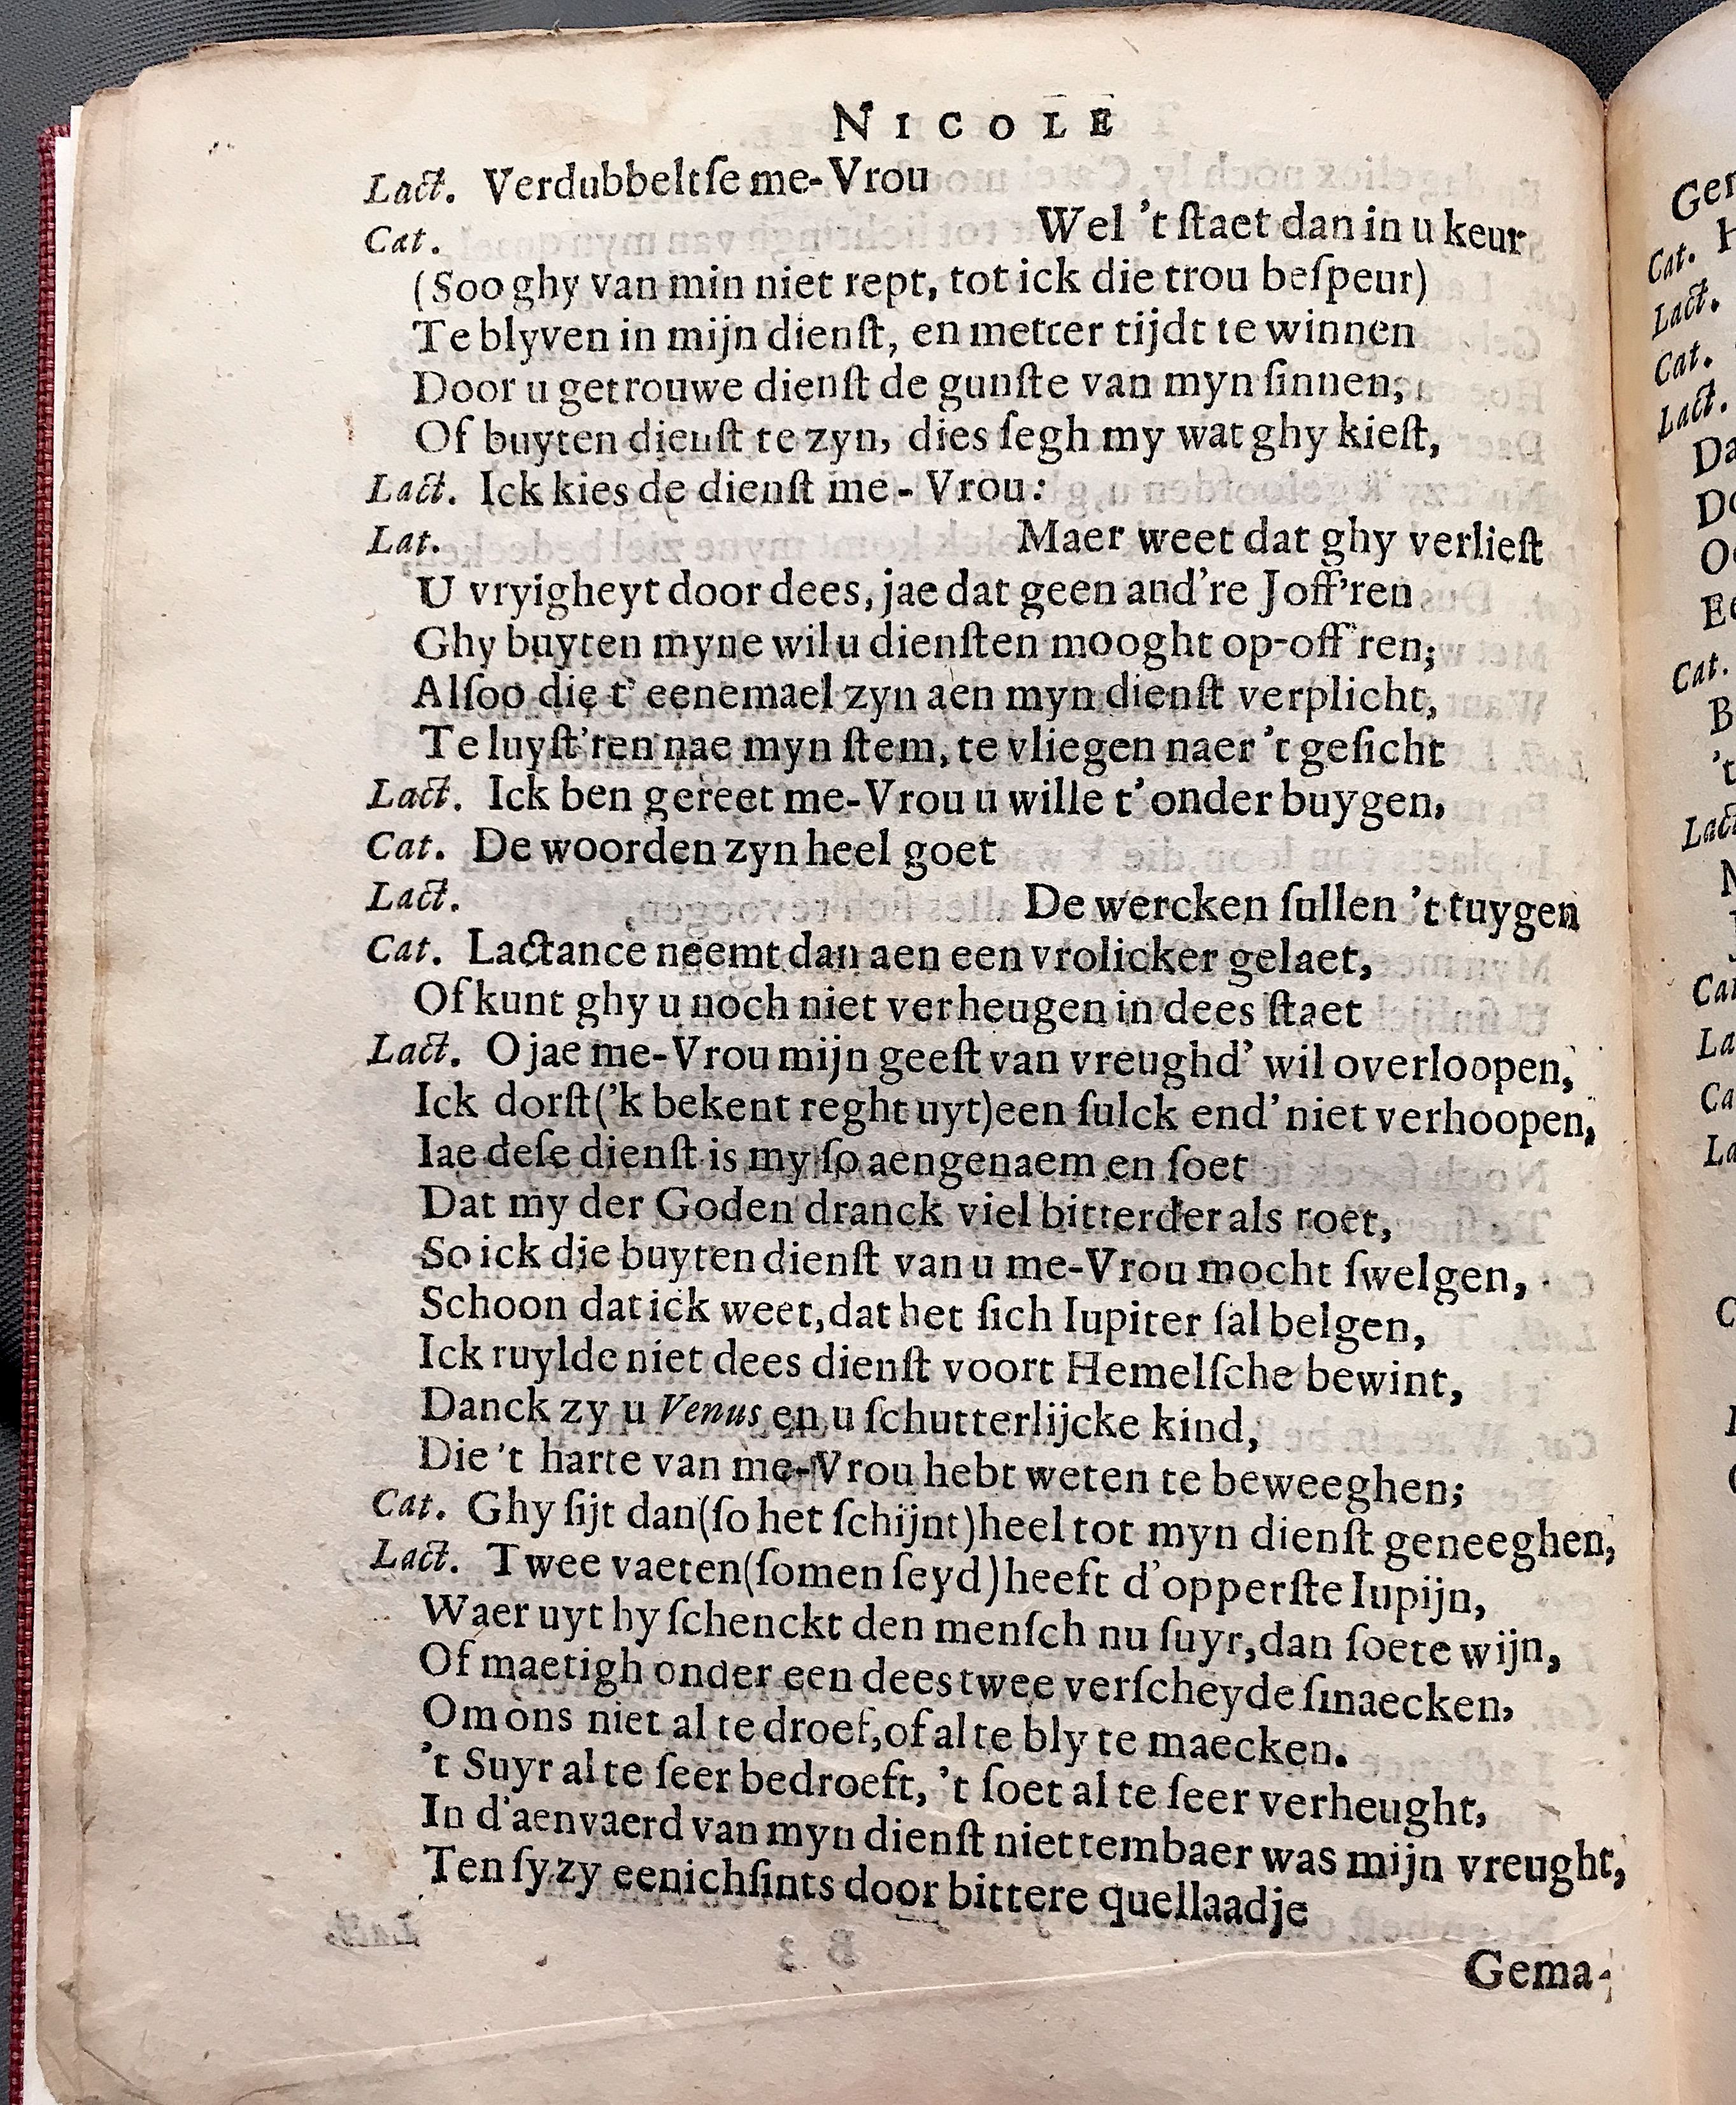 NICOLE
Lact. Verdubbeltſe me-Vrou
Cat. Wel 't ſtaet dan in u keur
(Soo ghy van min niet rept, tot ick die trou beſpeur)
Te blyven in mijn dienſt, en metter tijdt te winnen
Door u getrouwe dienſt de gunſte van myn ſinnen;
Of buyten dienſt te zyn, dies ſegh my wat ghy kieſt,
Lact. Ick kies de dienſt me-Vrou:
Lat. Maer weet dat ghy verlieſt
U vryigheyt door dees, jae dat geen and're Joff'ren
Ghy buyten myne wil u dienſten mooght op-off'ren;
Alſoo die t' eenemael zyn aen myn dienſt verplicht,
Te luyſt'ren nae myn ſtem, te vliegen naer 't geſicht
Lact. Ick ben gereet me-Vrou u wille t' onder buygen,
Cat. De woorden zyn heel goet
Lact. De wercken ſullen 't tuygen
Cat. Lactance neemt dan aen een vrolicker gelaet,
Of kunt ghy u noch niet verheugen in dees ſtaet
Lact. O jae me-Vrou mijn geeſt van vreughd' wil overloopen,
Ick dorſt ('k bekent reght uyt) een ſulck end' niet verhoopen,
Iae deſe dienſt is my ſo aengenaem en ſoet
Dat my der Goden dranck viel bitterder als roet,
So ick die buyten dienſt van u me-Vrou mocht ſwelgen,
Schoon dat ick weet, dat het ſich Iupiter ſal belgen,
Ick ruylde niet dees dienſt voort Hemelſche bewint,
Danck zy u Venus en u ſchutterlijcke kind,
Die 't harte van me-Vrou hebt weten te beweeghen;
Cat. Ghy ſijt dan (ſo het ſchijnt) heel tot myn dienſt geneeghen,
Lact. Twee vaeten (ſomen ſeyd) heeft d'opperſte Iupijn,
Waer uyt hy ſchenckt den menſch nu ſuyr, dan ſoete wijn,
Of maetigh onder een dees twee verſcheyde ſmaecken,
Om ons niet al te droef, of al te bly te maecken.
't Suyr al te ſeer bedroeft, 't ſoet al te ſeer verheught,
In d'aenvaerd van myn dienſt niet tembaer was mijn vreught,
Ten ſy zy eenichſints door bittere quellaadje
Gema-